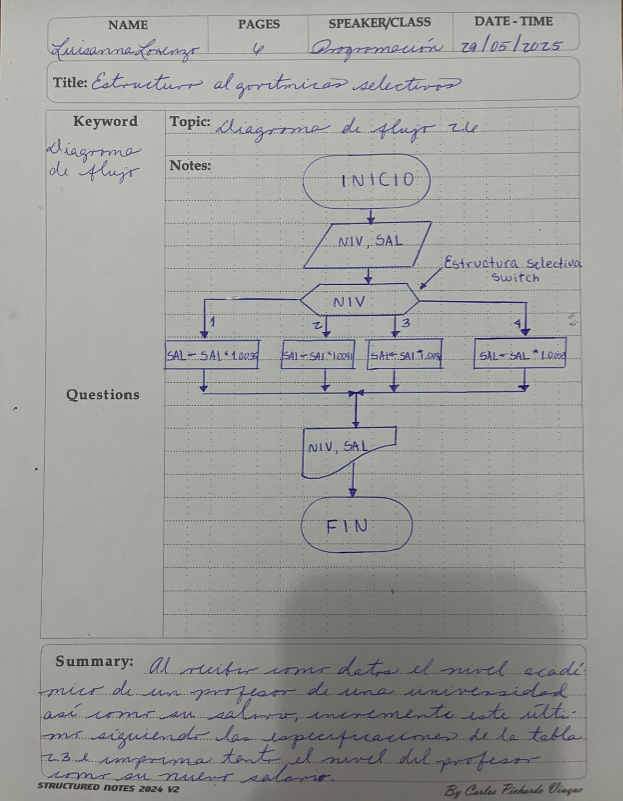 NAME PAGES SPEAKER/CLASS DATE - TIME
Luisanna Lorenzo 6 Programación 29/05/2025
Title: Estructura algoritmicas selectivas
Keyword
Diagrama
de flujo
Topic: Diagrama de flujo 2.6
Notes:
INICIO
NIV, SAL
Estructura Selectiva
Switch
NIV
1 2 3 4
SAL ← SAL * 1.0035 SAL ← SAL * 1.0041 SAL ← SAL * SAL ← SAL *
Questions
NIV, SAL
FIN
Summary: Al recibir como datos el nivel acadé-
mico de un profesor de una universidad
así como su salario, incremente este últi-
mo siguiendo las especificaciones de la tabla
2.3 e imprima tanto el nivel del profesor
como su nuevo salario.
STRUCTURED NOTES 2024 V2 By Carlos Pichardo Viuque